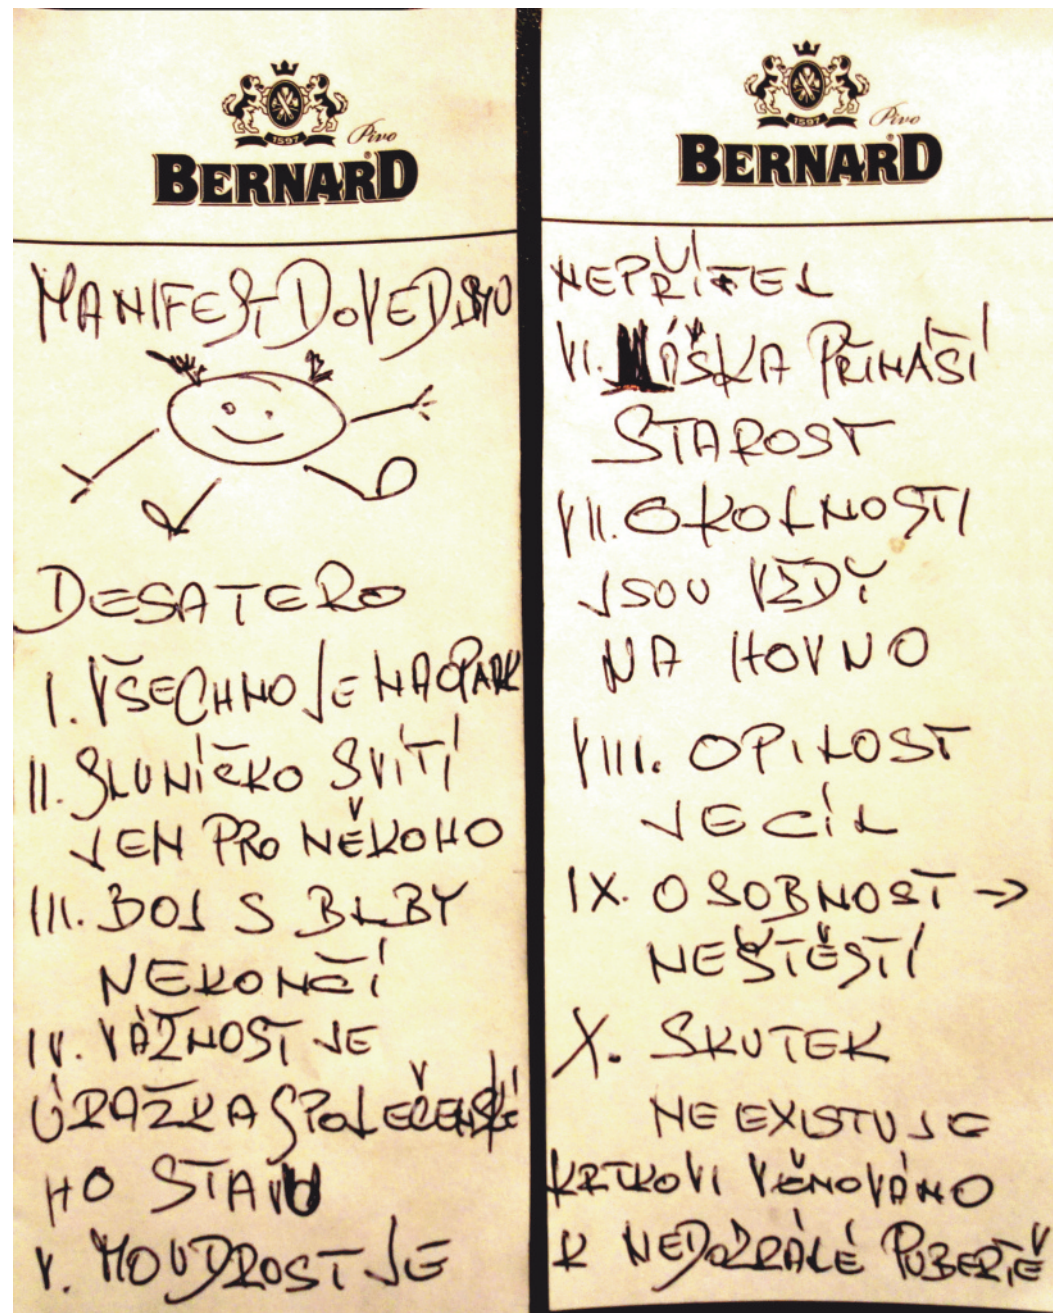 1597
Pivo
BERNARD
MANIFEST DOVEDISMU
DESATERO
I. VŠECHNO JE NAOPAK
II. SLUNÍČKO SVÍTÍ
JEN PRO NĚKOHO
III. BOJ S BLBY
NEKONČÍ
IV. VÁŽNOST JE
ÚRAŽKA SPOLEČENSKÉ
HO STAVU
V. MOUDROST JE
1597
Pivo
BERNARD
NEPŘÍTEL
VI. PŘINÁŠÍ
STAROST
VII. OKOLNOSTI
JSOU VŽDY
NA HOVNO
VIII. OPILOST
JE CÍL
IX. OSOBNOST →
NEŠTĚSTÍ
X. SKUTEK
NEEXISTUJE
KRTKOVI VĚNOVÁNO
K NEDOZRÁLÉ PUBERTĚ